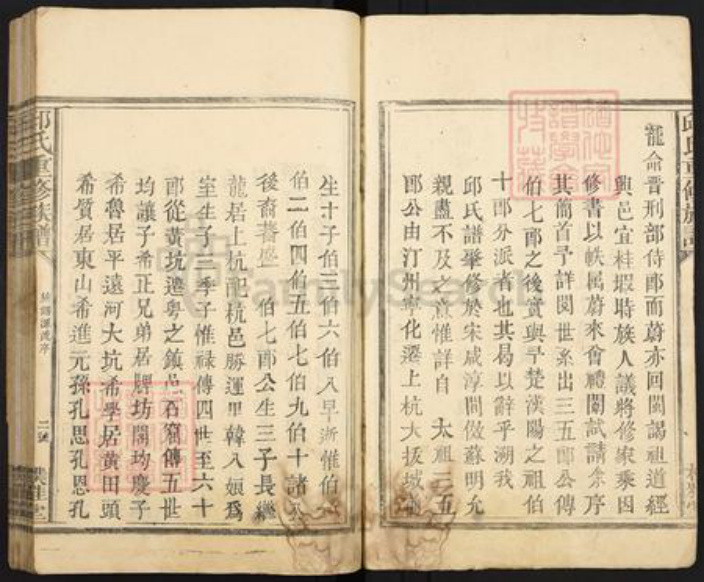 寵命晉刑部侍郎而蔚亦回閩謁祖道經
興邑宜桂瑕時族人議將修家乘因
修書以帙属蔚來會禮闈試請余序
其簡首予詳閱世系出三五郎公傳
伯七郎之後實與予楚漢陽之祖伯
十郎分派者也其曷以辭乎溯我
邱氏譜肇修於宋咸淳間倣蘇明允
親盡不及之意惟詳自 太祖三五
郎公由汀州寧化遷上杭大拔城
生十子伯三伯六伯八早逝惟伯
伯二伯四伯五伯七伯九伯十諸
後裔蕃盛 伯七郎公生三子長繼
龍居上杭配杭邑勝運里韓八娘爲
室生子三季子惟禄傳四世至六十
郎從黃坑遷粤之鎮邑石窟傳五世
均讓子希正兄弟居牌坊閣均慶子
希魯居平遠河大坑希學居黄田頭
希質居東山希進元孫孔思孔恩孔
邱氏重修族譜
族譜源流序
二
FamilySearch